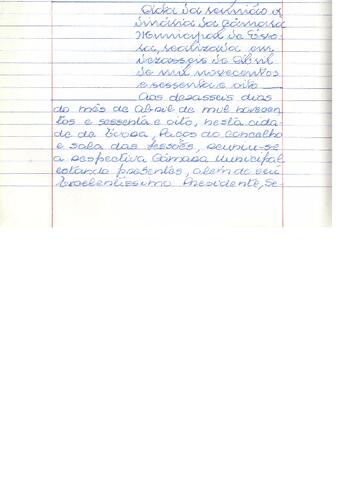 Acta da reunião o
rdinária da Câmara
Municipal de Évo-
ra, realizada em
dezasseis de Abril
de mil novecentos
e sessenta e oito
Aos dezasseis dias
do mês de Abril de mil novecen
tos e sessenta e oito, nesta cida-
de de Évora, Paços do Concelho
e sala das sessões, reuniu-se
a respectiva Câmara Municipal
estando presentes, além do seu
Excelentíssimo Presidente, Se-